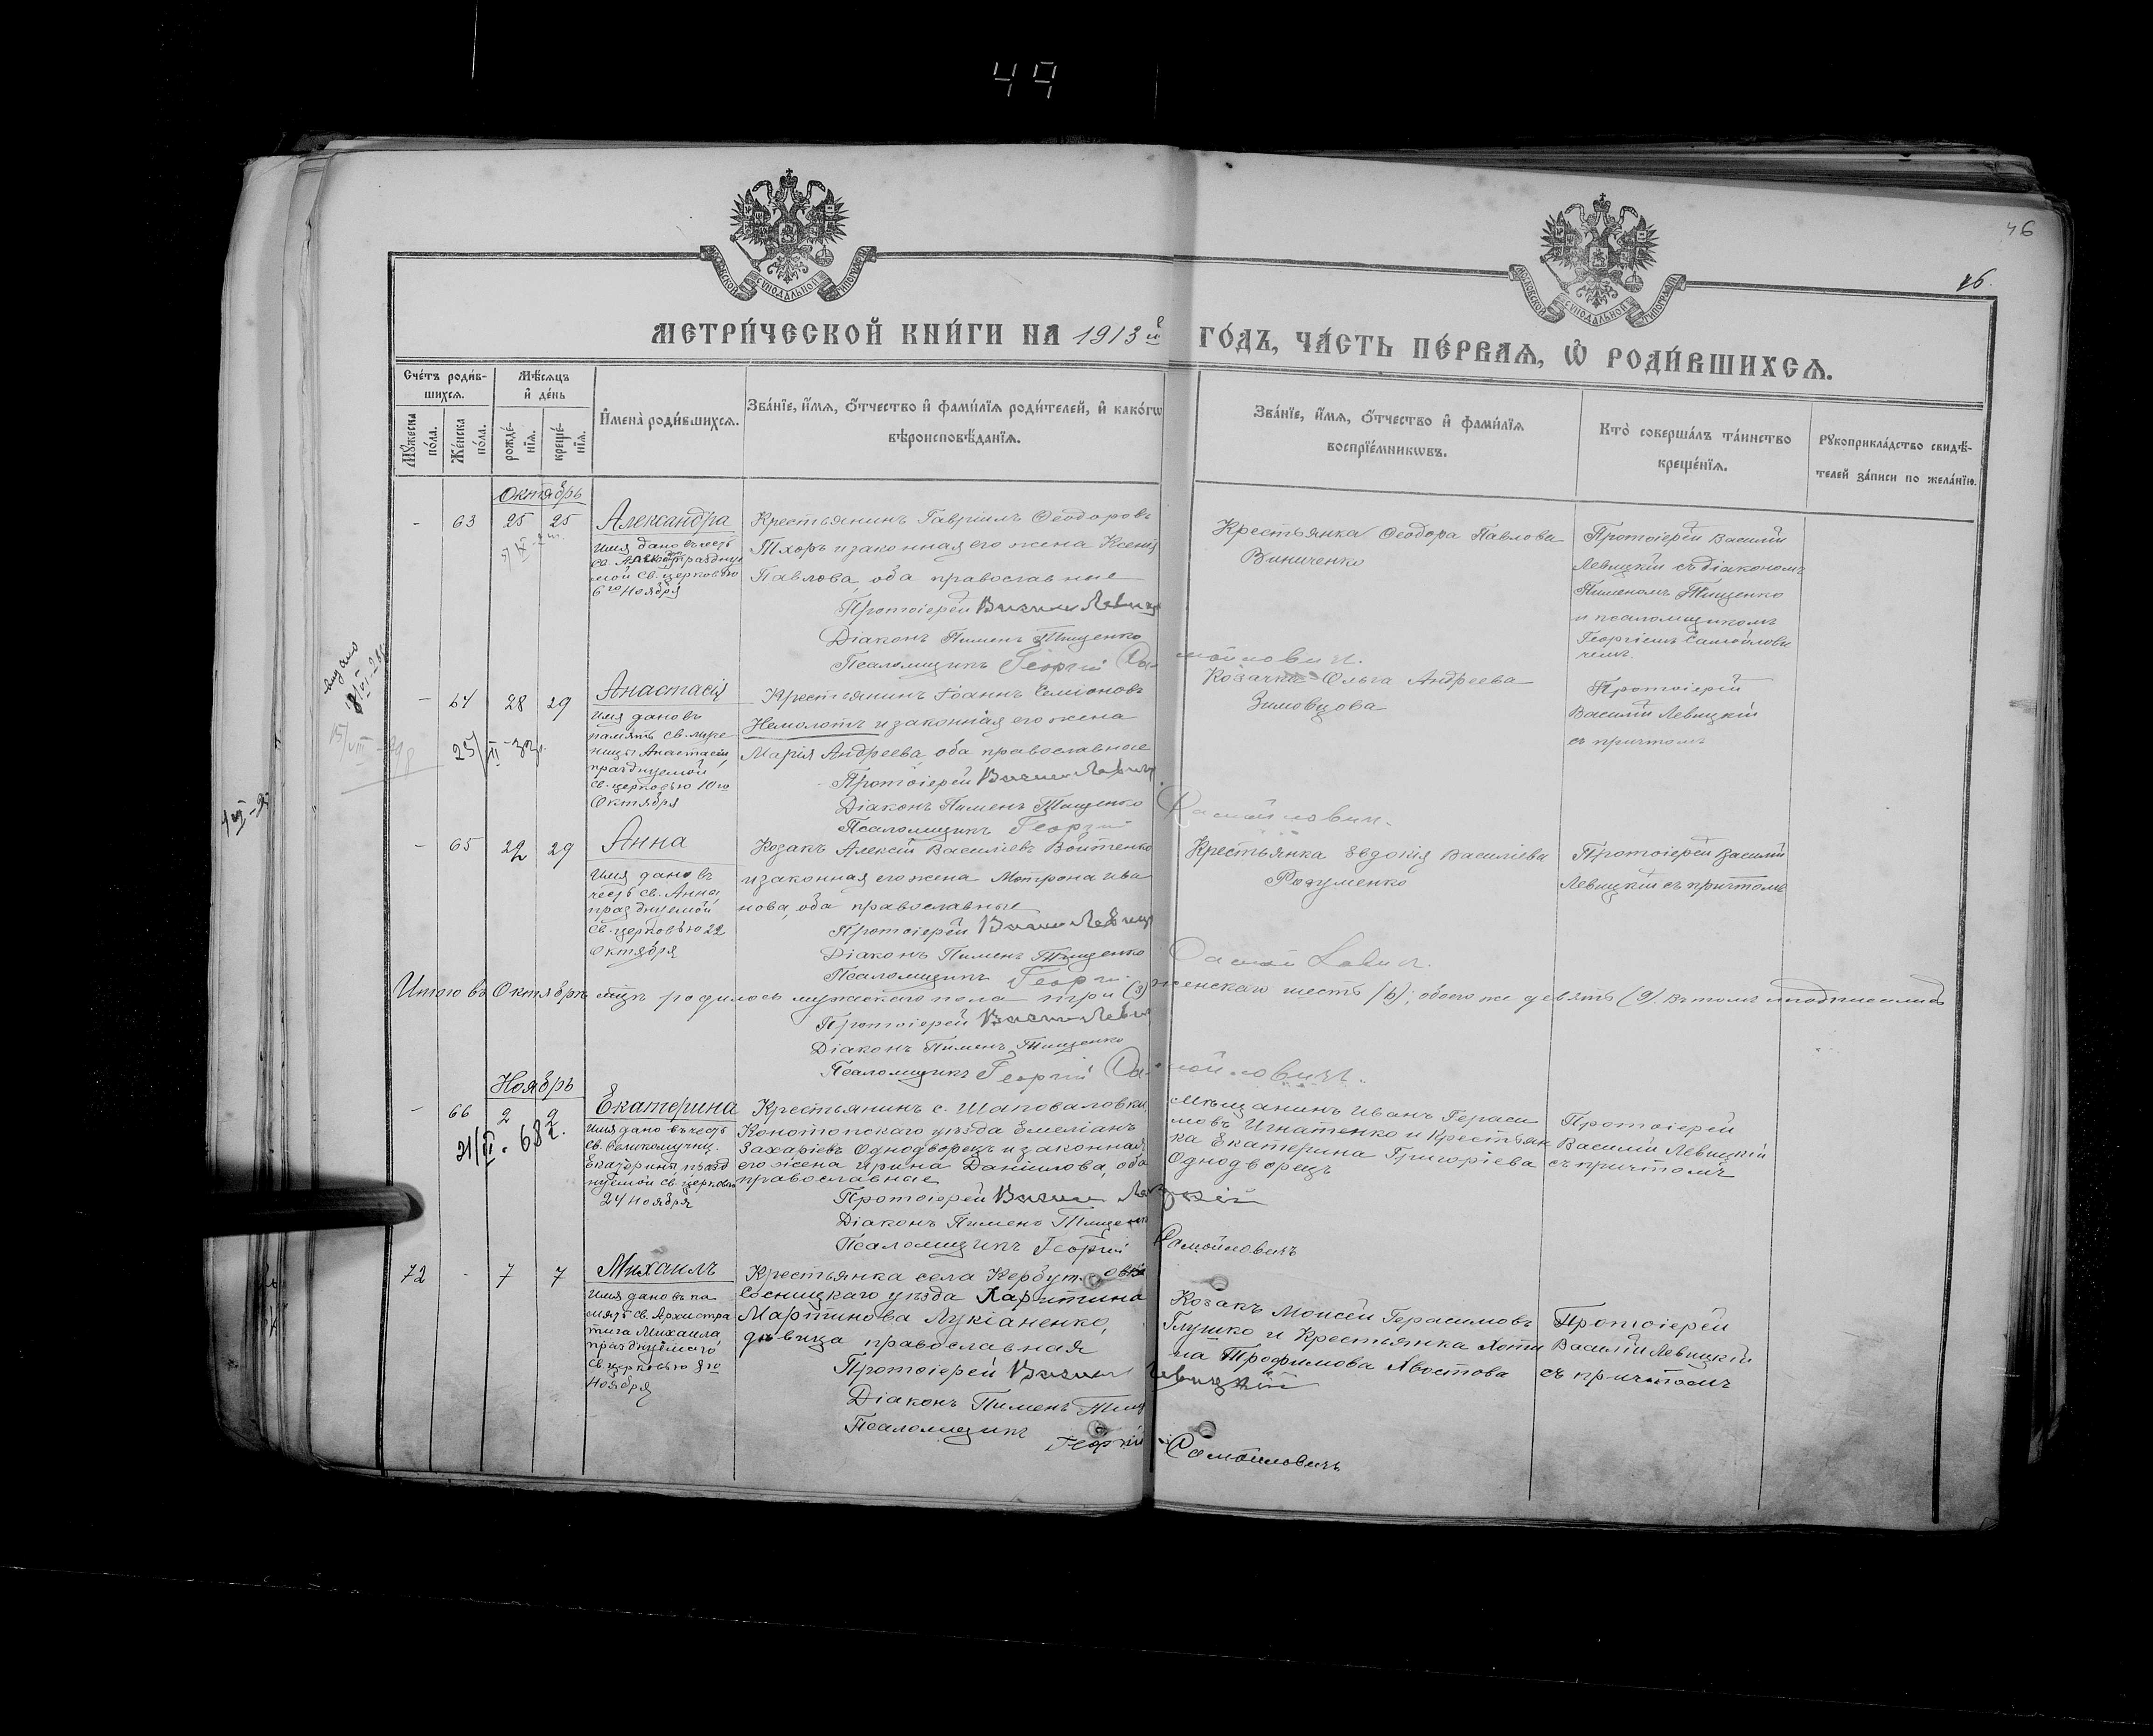 49
46
46.
МОСКОВСКОЙ СѴНОДАЛЬНОЙ ТИПОГРАФІИ
МОСКОВСКОЙ СѴНОДАЛЬНОЙ ТИПОГРАФІИ
МЕТРИ́ЧЕСКОЙ КНИ́ГИ НА 1913 й ГО́ДЪ, ЧА́СТЬ ПЕ́РВАѦ, Ѽ РОДИ́ВШИХСѦ.
Сче́тъ роди́в-
шихсѧ.
Мѣ́сѧцъ
и҆ де́нь
Мꙋ́жеска по́ла.
Же́нска по́ла.
рожде́-
нїѧ.
креще́-
нїѧ.
И҆мена̀ роди́вшихсѧ.
Зва́нїе, и҆́мѧ, ѻ҆́тчество и҆ фами́лїѧ роди́телей, и҆ како́гѡ
вѣроисповѣ́данїѧ.
Зва́нїе, и҆́мѧ, ѻ҆́тчество и҆ фами́лїѧ
воспрїе́мникѡвъ.
Кто̀ соверша́лъ та́инство
креще́нїѧ.
Рꙋкоприкла́дство свидѣ́-
телей за́писи по жела́нїю.
Октябрь
- 63 25 25
Александра
Имя дано въ честь
св. Александры праздну
мой св. церковью
6го Ноября
Крестьянинъ Гавріилъ Ѳеодоровъ
Тхоръ и законная его жена Ксенія
Павлова, оба православные
Протоіерей Василій Левицкій
Діаконъ Пименъ Тищенко
Псаломщикъ Георгій Самойловичъ.
Крестьянка Ѳеодора Павлова
Виниченко
Протоіерей Василій
Левицкій съ діакономъ
Пименомъ Тищенко
и псаломщикомъ
Георгіемъ Самойлови
чемъ.
выдано
- 64 28 29
Анастасія
Имя дано въ
память св. муче
ницы Анастасіи
празднуемой
св. церковью 10го
Октября
Крестьянинъ Іоаннъ Симіоновъ
Немолотъ и законная его жена
Марія Андреева, оба православные
Протоіерей Василій Левицкій
Діаконъ Пименъ Тищенко
Псаломщикъ Георгій Самойловичъ.
Козачка Ольга Андреева
Зимовцова
Протоіерей
Василій Левицкій
съ причтомъ
- 65 29
Анна
Имя дано въ
честь св. Анны,
празднуемой
св. церковью 22
Октября
Козакъ Алексій Василіевъ Войтенко
и законная его жена Мотрона Ива
нова, оба православные
Протоіерей Василій Левицкій
Діаконъ Пименъ Тищенко
Псаломщикъ Георгій Самойловичъ.
Крестьянка Евдокія Василіева
Розуменко
Протоіерей Василій
Левицкій съ причтомъ
Итого въ Октябрѣ мцѣ родилось мужескаго пола три (3) женскаго шесть (6); обоего же девять (9). Въ томъ и подписались
Протоіерей Василій Левицкій
Діаконъ Пименъ Тищенко
Псаломщикъ Георгій Самойловичъ.
Ноябрь
- 66 2 2
Екатерина
Имя дано въ честь
св. великомучениц.
Екатерины празд
нуемой св. церковью
24 Ноября
Крестьянинъ с. Шаповаловки,
Конотопскаго уѣзда Емеліанъ
Захаріевъ Однодворецъ и законная
его жена Ирина Даніилова, оба
православные
Протоіерей Василій Левицкій
Діаконъ Пименъ Тищенко
Псаломщикъ Георгій Самойловичъ
Мѣщанинъ Иванъ Гераси
мовъ Игнатенко и Крестьян
ка Екатерина Григоріева
Однодворецъ
Протоіерей
Василій Левицкій
съ причтомъ
72 - 7 7
Михаилъ
Имя дано въ па
мять св. Архистра
тига Михаила,
празднуемаго
св. церковью 8го
Ноября
Крестьянка села Кербутовки
Сосницкаго уѣзда Харитина
Мартинова Лукіаненко,
дѣвица православная
Протоіерей Василій Левицкій
Діаконъ Пименъ Тищ
Псаломщикъ
Георгій Самойловичъ
Козакъ Моисей Герасимовъ
Глушко и Крестьянка Хоти
на Трофимова Хвостова
Протоіерей
Василій Левицкій
съ причтомъ